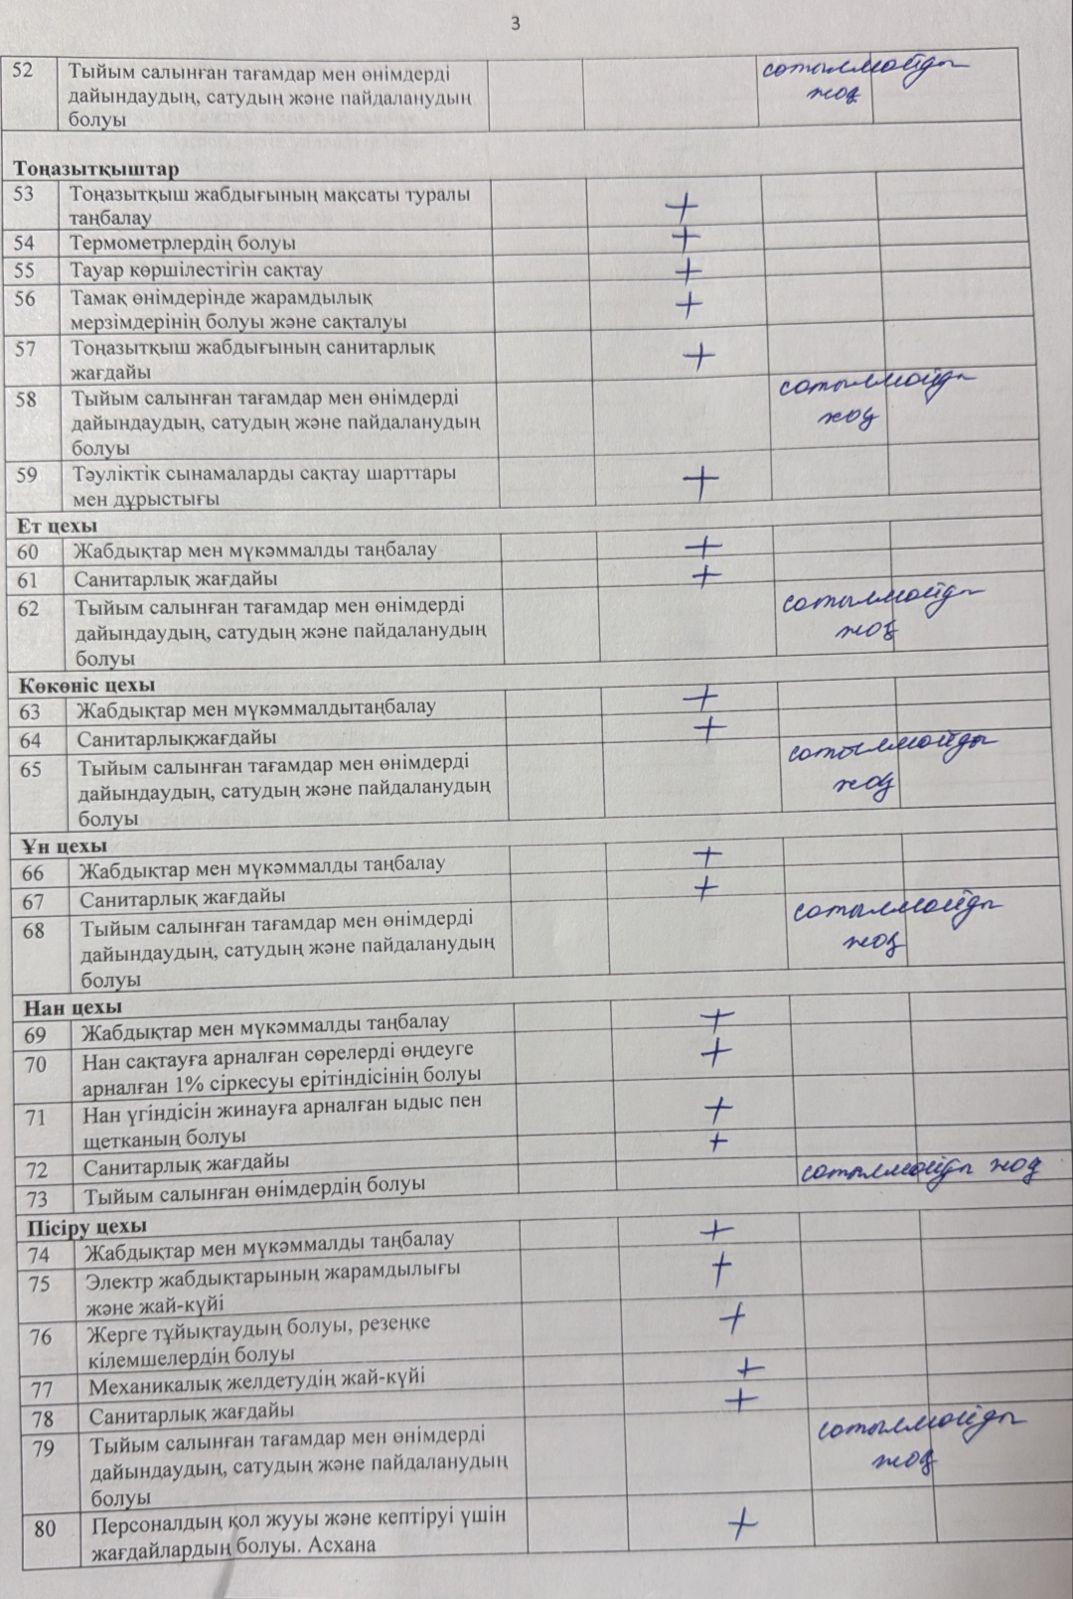 3
52 Тыйым салынған тағамдар мен өнімдерді сотылмойды
дайындаудың, сатудың және пайдаланудың жоқ
болуы
Тоңазытқыштар
53 Тоңазытқыш жабдығының мақсаты туралы +
таңбалау
54 Термометрлердің болуы +
55 Тауар көршілестігін сақтау +
56 Тамақ өнімдерінде жарамдылық +
мерзімдерінің болуы және сақталуы
57 Тоңазытқыш жабдығының санитарлық +
жағдайы
58 Тыйым салынған тағамдар мен өнімдерді сотылмойды
дайындаудың, сатудың және пайдаланудың жоқ
болуы
59 Тәуліктік сынамаларды сақтау шарттары +
мен дұрыстығы
Ет цехы
60 Жабдықтар мен мүкәммалды таңбалау +
61 Санитарлық жағдайы +
62 Тыйым салынған тағамдар мен өнімдерді сотылмойды
дайындаудың, сатудың және пайдаланудың жоқ
болуы
Көкөніс цехы
63 Жабдықтар мен мүкәммалдытаңбалау +
64 Санитарлықжағдайы +
65 Тыйым салынған тағамдар мен өнімдерді сотылмойды
дайындаудың, сатудың және пайдаланудың жоқ
болуы
Ұн цехы
66 Жабдықтар мен мүкәммалды таңбалау +
67 Санитарлық жағдайы +
68 Тыйым салынған тағамдар мен өнімдерді сотылмойды
дайындаудың, сатудың және пайдаланудың жоқ
болуы
Нан цехы
69 Жабдықтар мен мүкәммалды таңбалау +
70 Нан сақтауға арналған сөрелерді өңдеуге +
арналған 1% сіркесуы ерітіндісінің болуы
71 Нан үгіндісін жинауға арналған ыдыс пен +
щетканың болуы
72 Санитарлық жағдайы +
73 Тыйым салынған өнімдердің болуы сотылмойды жоқ
Пісіру цехы
74 Жабдықтар мен мүкәммалды таңбалау +
75 Электр жабдықтарының жарамдылығы +
және жай-күйі
76 Жерге тұйықтаудың болуы, резеңке +
кілемшелердің болуы
77 Механикалық желдетудің жай-күйі +
78 Санитарлық жағдайы +
79 Тыйым салынған тағамдар мен өнімдерді сотылмойды
дайындаудың, сатудың және пайдаланудың жоқ
болуы
80 Персоналдың қол жууы және кептіруі үшін +
жағдайлардың болуы. Асхана